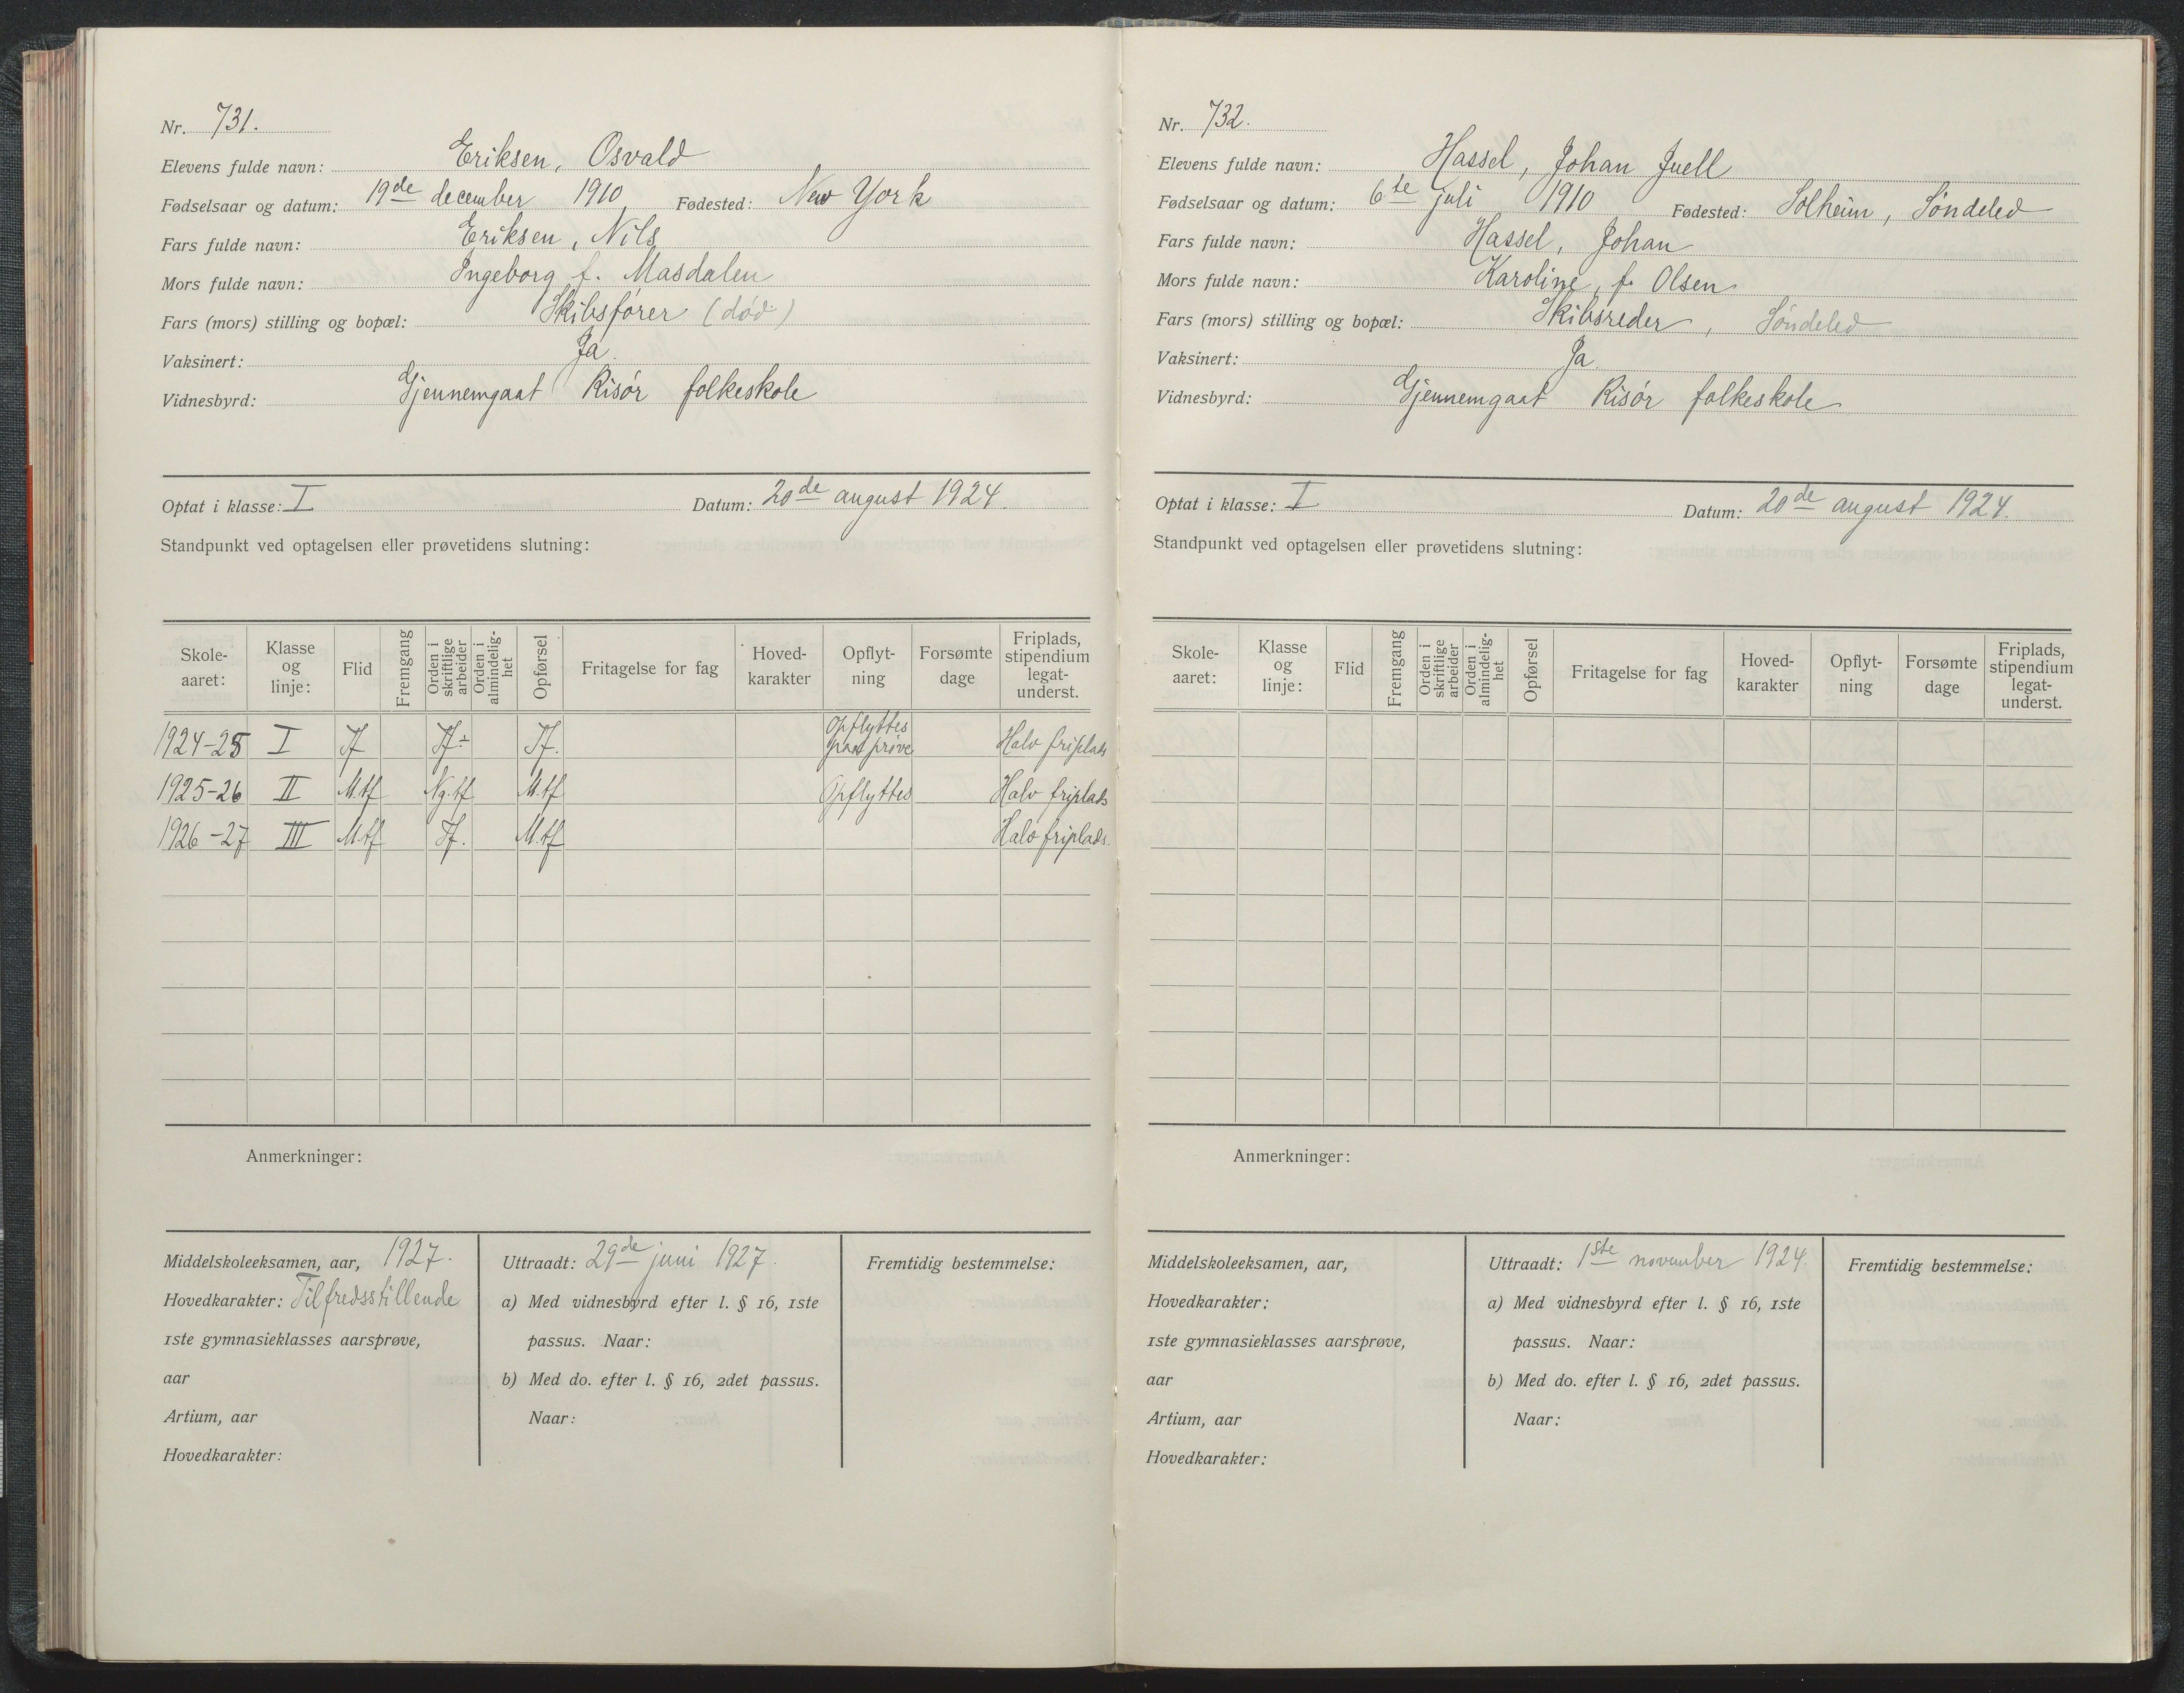 Nr. 731.
Elevens fulde navn: Eriksen, Osvald
Fødselsaar og datum: 19de december 1910 Fødested: New York
Fars fulde navn: Eriksen, Nils
Mors fulde navn: Ingeborg f. Masdalen
Fars (mors) stilling og bopæl: Skibsfører (død)
Vaksinert: Ja.
Vidnesbyrd: Gjennemgaat Risør folkeskole
Optat i klasse: I Datum: 20de august 1924.
Standpunkt ved optagelsen eller prøvetidens slutning:
Skole-aaret: Klasse og linje: Flid Fremgang Orden i skriftlige arbeider Orden i almindelig-het Opførsel Fritagelse for fag Hoved-karakter Opflyt-ning Forsømte dage Friplads, stipendium legat-underst.
1924-25 I Tf Tf÷ Tf. Opflyttes paa prøve Halv friplads
1925-26 II M.tf Ng.tf M.tf Opflyttes Halv friplads
1926-27 III M.tf Tf. M.tf Halv friplads.
Anmerkninger:
Middelskoleeksamen, aar, 1927.
Hovedkarakter: Tilfredsstillende
1ste gymnasieklasses aarsprøve,
aar
Artium, aar
Hovedkarakter:
Uttraadt: 29de juni 1927.
a) Med vidnesbyrd efter l. § 16, 1ste
passus. Naar:
b) Med do. efter l. § 16, 2det passus.
Naar:
Fremtidig bestemmelse:
Nr. 732.
Elevens fulde navn: Hassel, Johan Juell
Fødselsaar og datum: 6te juli 1910 Fødested: Solheim, Søndeled
Fars fulde navn: Hassel, Johan
Mors fulde navn: Karoline, f. Olsen
Fars (mors) stilling og bopæl: Skibsreder, Søndeled
Vaksinert: Ja.
Vidnesbyrd: Gjennemgaat Risør folkeskole
Optat i klasse: I Datum: 20de august 1924.
Standpunkt ved optagelsen eller prøvetidens slutning:
Skole-aaret: Klasse og linje: Flid Fremgang Orden i skriftlige arbeider Orden i almindelig-het Opførsel Fritagelse for fag Hoved-karakter Opflyt-ning Forsømte dage Friplads, stipendium legat-underst.
Anmerkninger:
Middelskoleeksamen, aar,
Hovedkarakter:
1ste gymnasieklasses aarsprøve,
aar
Artium, aar
Hovedkarakter:
Uttraadt: 1ste november 1924.
a) Med vidnesbyrd efter l. § 16, 1ste
passus. Naar:
b) Med do. efter l. § 16, 2det passus.
Naar:
Fremtidig bestemmelse: